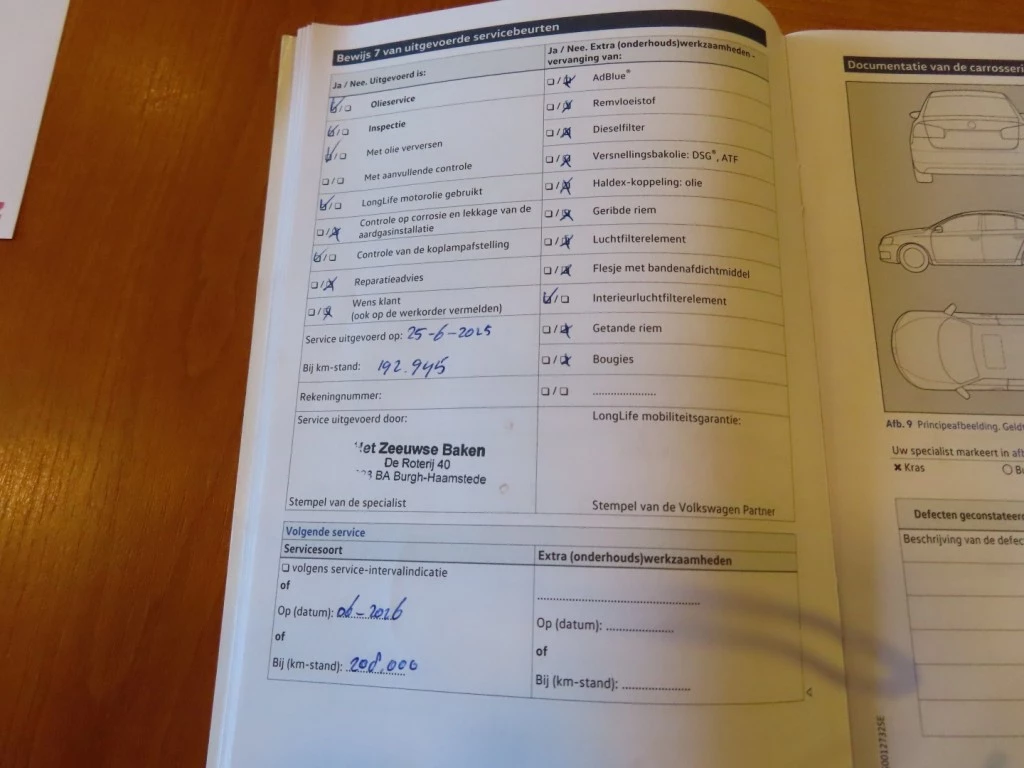 Bewijs 7 van uitgevoerde servicebeurten
Ja / Nee. Uitgevoerd is:
Olieservice
Inspectie
Met olie verversen
Met aanvullende controle
LongLife motorolie gebruikt
Controle op corrosie en lekkage van de
aardgasinstallatie
Controle van de koplampafstelling
Reparatieadvies
Wens klant
(ook op de werkorder vermelden)
Service uitgevoerd op: 25-6-2025
Bij km-stand: 192.945
Rekeningnummer:
Service uitgevoerd door:
Het Zeeuwse Baken
De Roterij 40
BA Burgh-Haamstede
Stempel van de specialist
Ja / Nee. Extra (onderhouds)werkzaamheden -
vervanging van:
AdBlue®
Remvloeistof
Dieselfilter
Versnellingsbakolie: DSG®, ATF
Haldex-koppeling: olie
Geribde riem
Luchtfilterelement
Flesje met bandenafdichtmiddel
Interieurluchtfilterelement
Getande riem
Bougies
LongLife mobiliteitsgarantie:
Stempel van de Volkswagen Partner
Volgende service
Servicesoort
volgens service-intervalindicatie
of
Op (datum): 06-2026
of
Bij (km-stand): 208.000
Extra (onderhouds)werkzaamheden
Op (datum):
of
Bij (km-stand):
Documentatie van de carrosseri
Afb. 9 Principeafbeelding. Geld
Uw specialist markeert in afb
× Kras
Defecten geconstateerd
Beschrijving van de defec